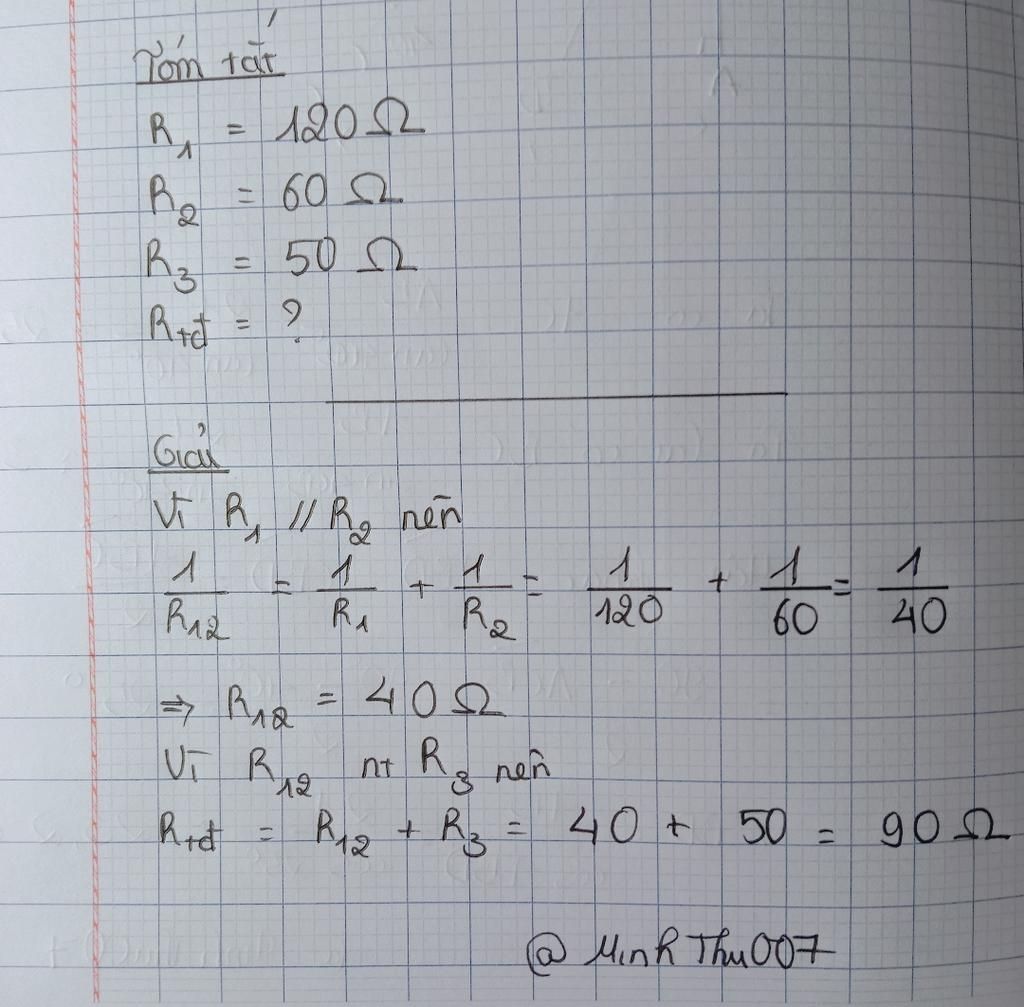 Tóm tắt
R₁ = 120 Ω
R₂ = 60 Ω
R₃ = 50 Ω
Rtđ = ?
Giải
Vì R₁ // R₂ nên
1/R₁₂ = 1/R₁ + 1/R₂ = 1/120 + 1/60 = 1/40
⇒ R₁₂ = 40 Ω
Vì R₁₂ nt R₃ nên
Rtđ = R₁₂ + R₃ = 40 + 50 = 90 Ω
@ MinhThu007